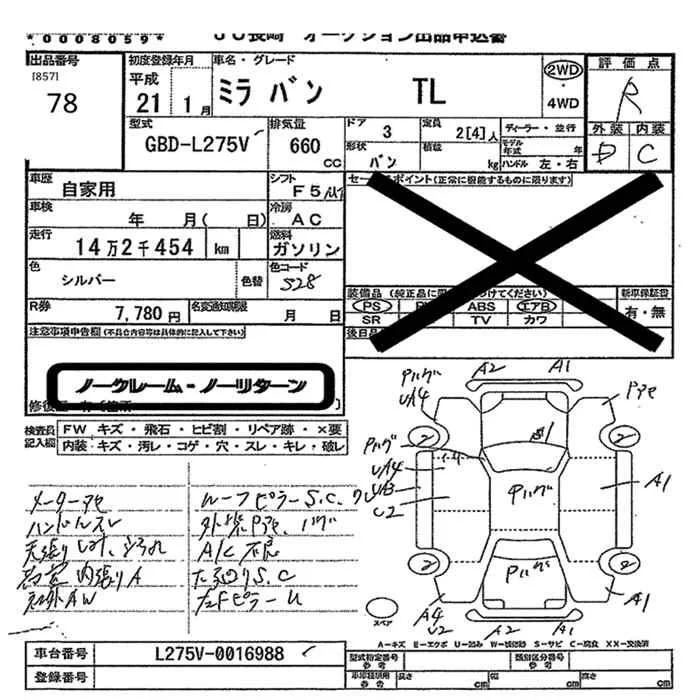 *0008059*
JU長崎 オークション出品申込書
出品番号 初度登録年月 車名・グレード 2WD 評価点
[857] 平成
78 21年 1月 ミラ バン TL ・4WD R
型式 排気量 ドア 3 定員 2[4]人 ディーラー・並行 外装 内装
GBD-L275V 660 CC 形状 バン 積載 kg モデル年式 年 ハンドル 左・右 D C
車歴 自家用 シフト F5 MT セールスポイント(正常に機能するものに限ります)
車検 年 月( 日) 冷房 AC
走行 14万2千454 km 燃料 ガソリン
色 シルバー 色替 色コード S28
R券 7,780円 名変通知期限 月 日
装備品 (純正品に限 つけてください) 新車保証書
PS ABS エアB 有・無
SR TV カワ
後日品
注意事項申告欄(不具合内容等は具体的に記入して下さい)
ノークレーム・ノーリターン
検査員記入欄 FW キズ・飛石・ヒビ割・リペア跡・×要
内装・キズ・汚レ・コゲ・穴・スレ・キレ・破レ
A2 A1
Pハゲ
U14
2 2
Pハゲ S1
U14
U13
U2 Pハゲ A1
2 2
Pハゲ
A4 A1
U2 A2 A1
メーターアセ ルーフピラーS.C.
ハンドルスレ 外装Pアセ、ハゲ
A/C不良
内張りA S.C
AW 左FピラーU
スペア
A-キズ E-エクボ U-凹み W-補修跡 S-サビ C-腐食 XX-交換済
車台番号 L275V-0016988 型式指定番号 参考 類別区分番号 参考
登録番号 車庫証明用 参考 長さ cm 幅 cm 高さ cm